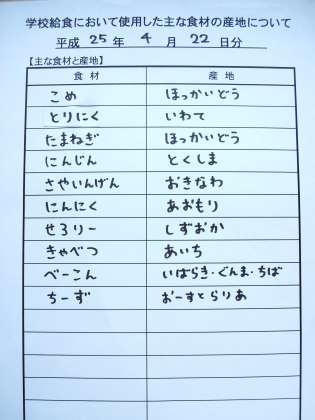 学校給食において使用した主な食材の産地について
平成 25 年 4 月 22 日分
【主な食材と産地】
食 材 産 地
こめ ほっかいどう
とりにく いわて
たまねぎ ほっかいどう
にんじん とくしま
さやいんげん おきなわ
にんにく あおもり
せろりー しずおか
きゃべつ あいち
べーこん いばらき・ぐんま・ちば
ちーず おーすとらりあ